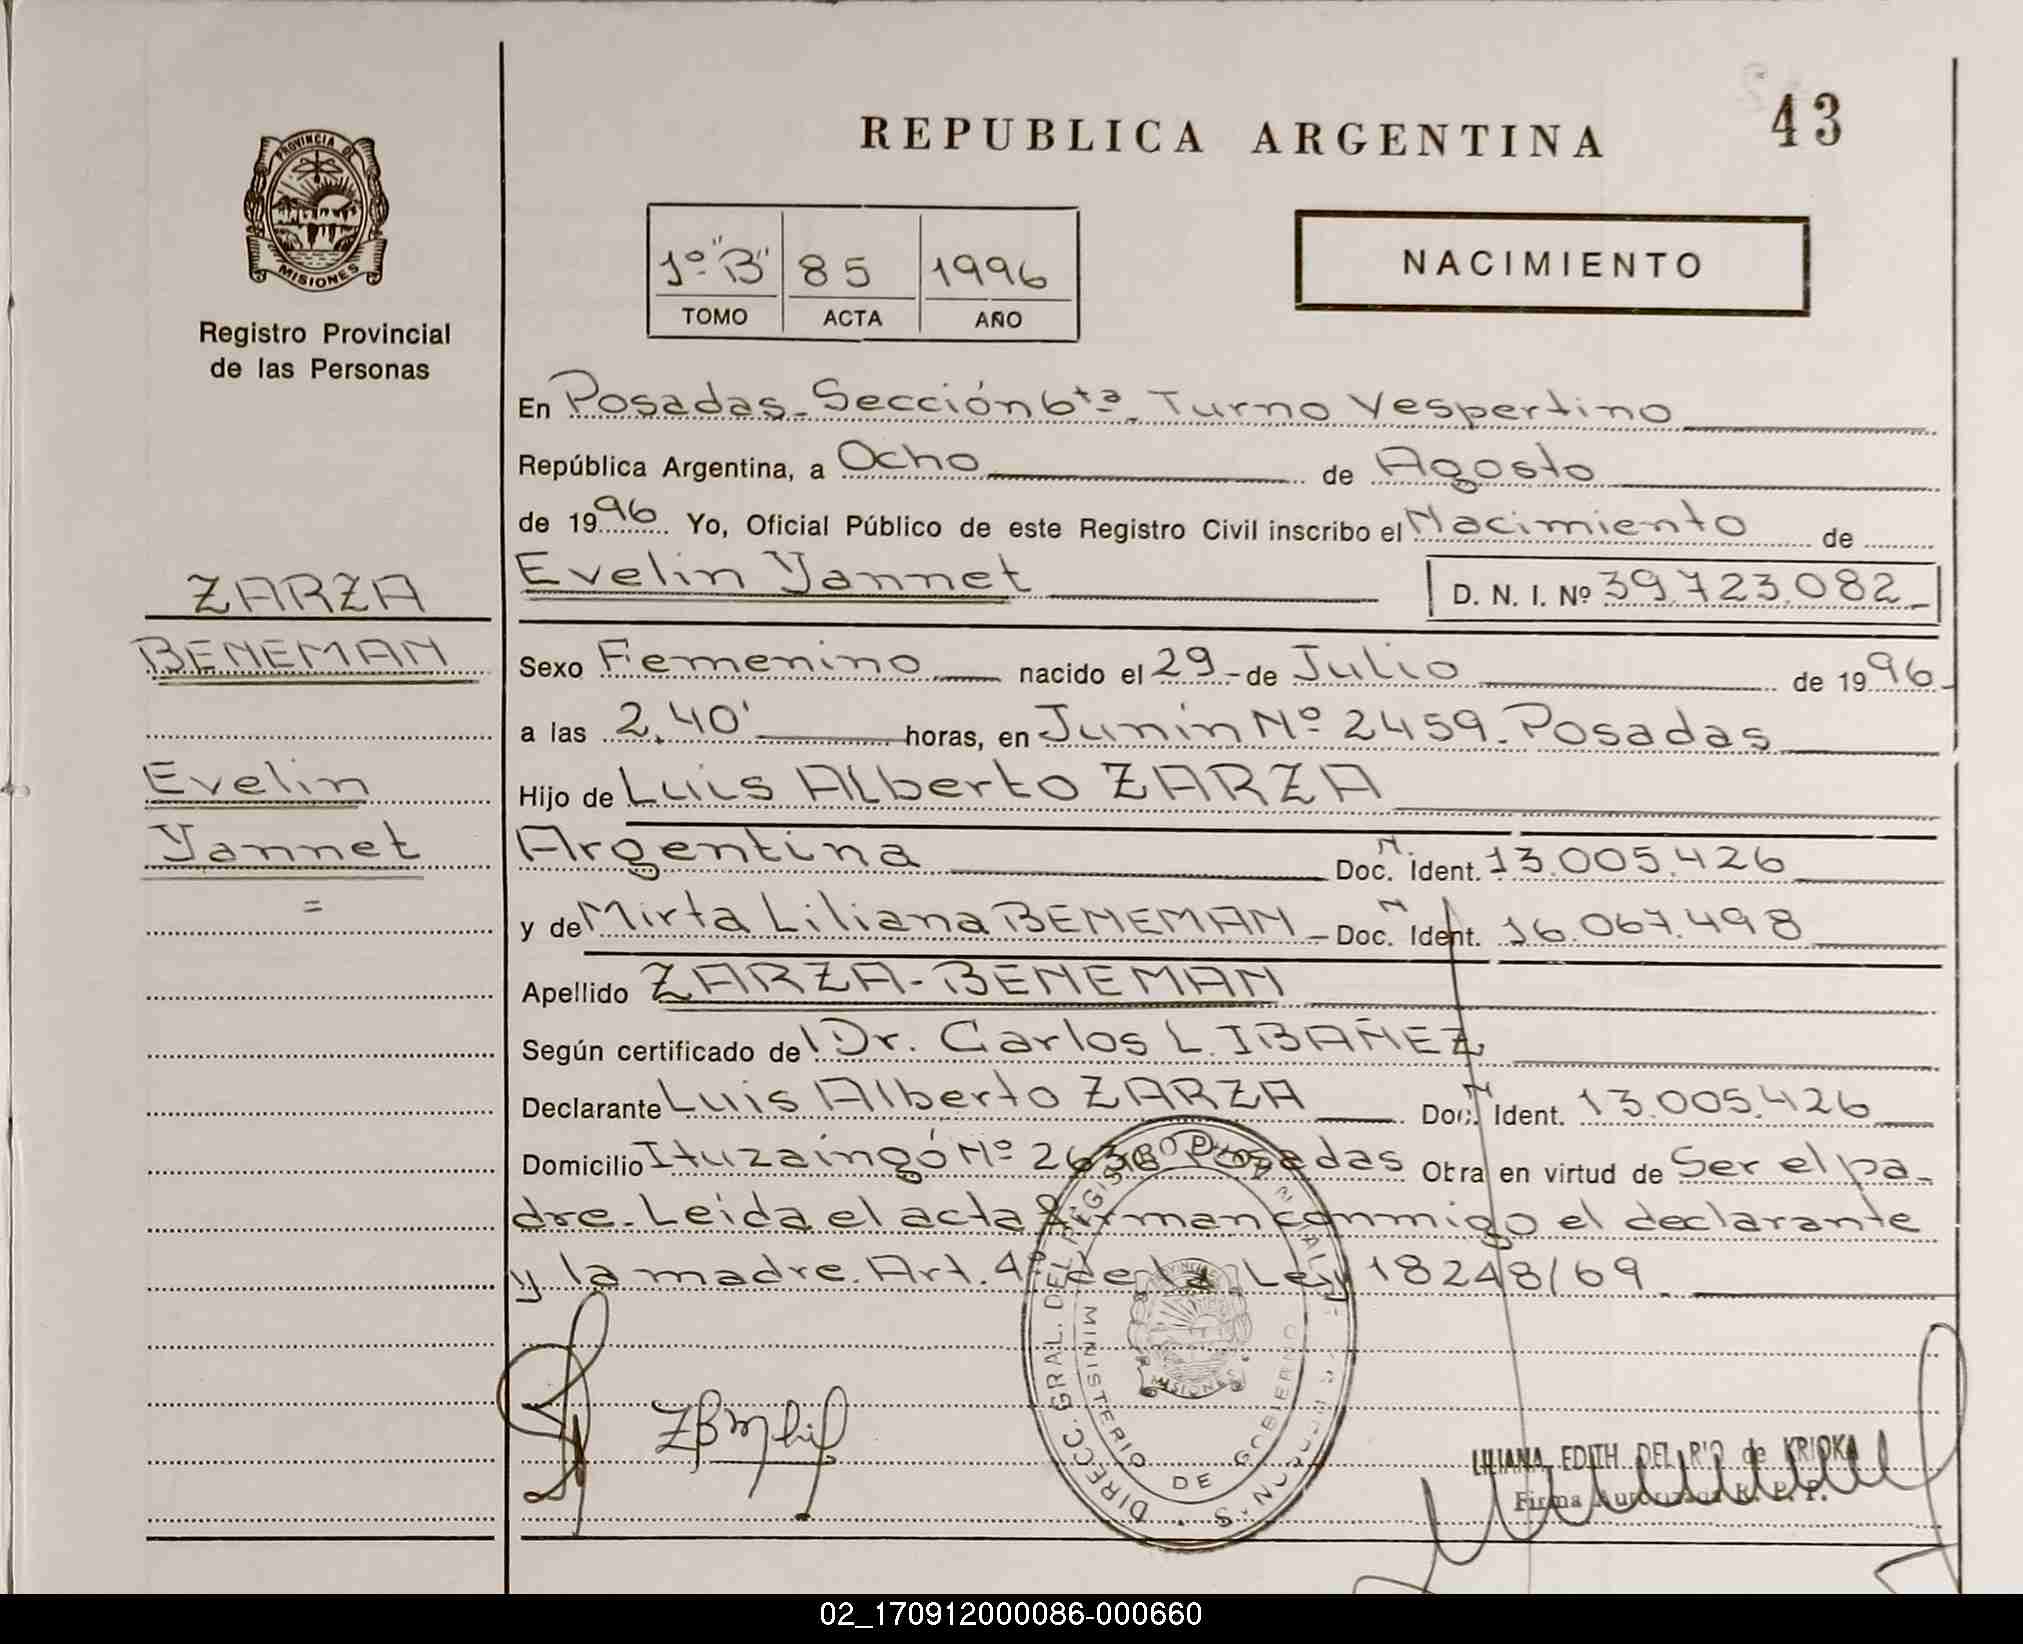 43
REPUBLICA ARGENTINA
PROVINCIA DE
MISIONES
Registro Provincial
de las Personas
1º "B" 85 1996
TOMO ACTA AÑO
NACIMIENTO
En Posadas-Sección 6ta. Turno Vespertino
República Argentina, a Ocho de Agosto
de 1996 Yo, Oficial Público de este Registro Civil inscribo el Nacimiento de
ZARZA
Evelin Yannet D. N. I. Nº 39.723.082
BENEMAN
Sexo Femenino nacido el 29 de Julio de 1996
a las 2,40' horas, en Junín Nº 2459-Posadas
Evelin
Hijo de Luis Alberto ZARZA
Yannet
Argentina Doc. N. Ident. 13.005.426
=
y de Mirta Liliana BENEMAN Doc. N Ident. 16.067.498
Apellido ZARZA-BENEMAN
Según certificado de Dr. Carlos L. IBAÑEZ
Declarante Luis Alberto ZARZA Doc. N Ident. 13.005.426
Domicilio Ituzaingó Nº Posadas Obra en virtud de Ser el pa-
dre. Leida el acta firman conmigo el declarante
y la madre. Art. 4º de la Ley 18248/69
DIRECC. GRAL. DEL REGISTRO
MINISTERIO DE GOBIERNO
MISIONES
LILIANA EDITH DEL RIO de KRIOKA
Firma Autorizada R. P. P.
02_170912000086-000660